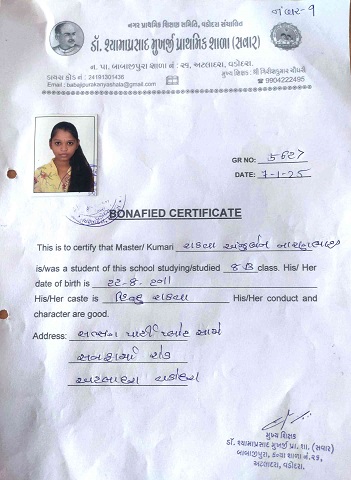 નંબર-૧
નગર પ્રાથમિક શિક્ષણ સમિતિ, વડોદરા સંચાલિત
ડૉ. શ્યામાપ્રસાદ મુખર્જી પ્રાથમિક શાળા (સવાર)
ન. પા. બાબાજીપુરા શાળા નં : ૨૧, અટલાદરા, વડોદરા.
ડાયસ કોડ નં : 24191301436
મુખ્ય શિક્ષક : શ્રી ગિરીશકુમાર ચૌધરી
Email : babajipurakanyashala@gmail.com
9904222495
GR NO: 5627
DATE: 7-1-25
BONAFIED CERTIFICATE
This is to certify that Master/ Kumari રાઠવા
is/was a student of this school studying/studied 8 B class. His/ Her
date of birth is ૨૨-૮-
His/Her caste is હિન્દુ રાઠવા His/Her conduct and
character are good.
Address: સત્સંગ પાર્ટી પ્લોટ સામે
સનફાર્મા રોડ
અટલાદરા વડોદરા
મુખ્ય શિક્ષક
ડૉ. શ્યામાપ્રસાદ મુખર્જી પ્રા. શા. (સવાર)
બાબાજીપુરા, કન્યા શાળા નં. ૨૧,
અટલાદરા, વડોદરા.